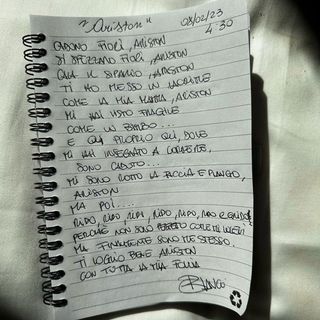 "Ariston"
08/02/23
4:30
CADONO FIORI, ARISTON
SI SPEZZANO FIORI, ARISTON
CALA IL SIPARIO, ARISTON
TI HO MESSO IN LACRIME
COME LA MIA MAMMA, ARISTON
MI HAI VISTO FRAGILE
COME UN BIMBO...
E QUI, PROPRIO QUI, DOVE
MI HAI INSEGNATO A CORRERE,
SONO CADUTO...
MI SONO ROTTO LA FACCIA E PIANGO,
ARISTON
MA POI....
RIDO, RIDO, RIDI, RIDO, RIDO, RIDO E GRIDO
PERCHÉ NON SONO COME MI VUOI
MA FINALMENTE SONO ME STESSO.
TI VOGLIO BENE ARISTON
CON TUTTA LA MIA FOLLIA
BLANCO